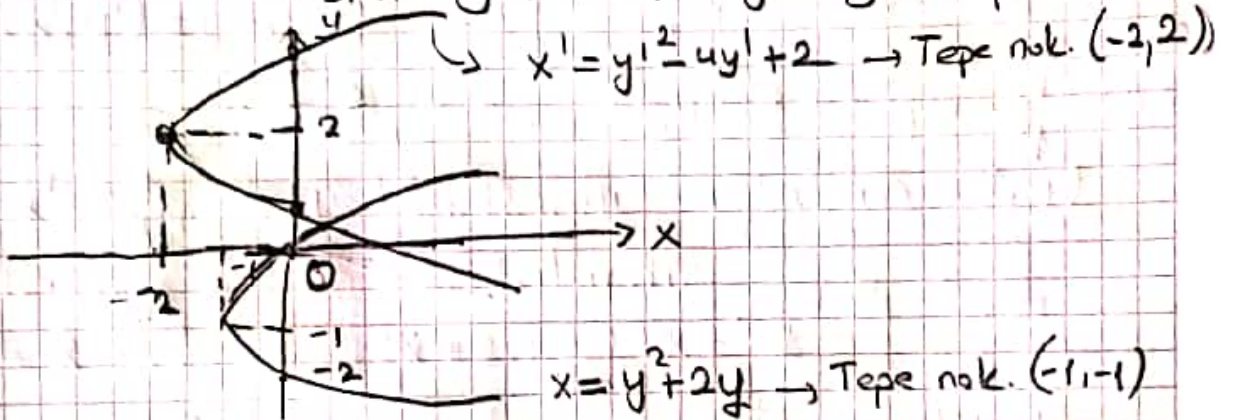 y
x' = y'² - 4y' + 2 → Tepe nok. (-2,2))
2
x
-1
0
-2
-1
-2
x = y² + 2y → Tepe nok. (-1,-1)